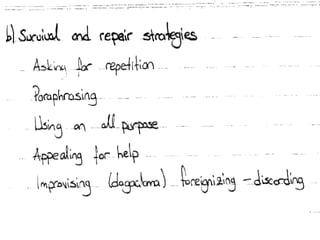 b) Survival and repair strategies
Asking for repetition
Paraphrasing
Using an all purpose
Appealing for help
Improvising (dogaçlama) foreignizing - discording